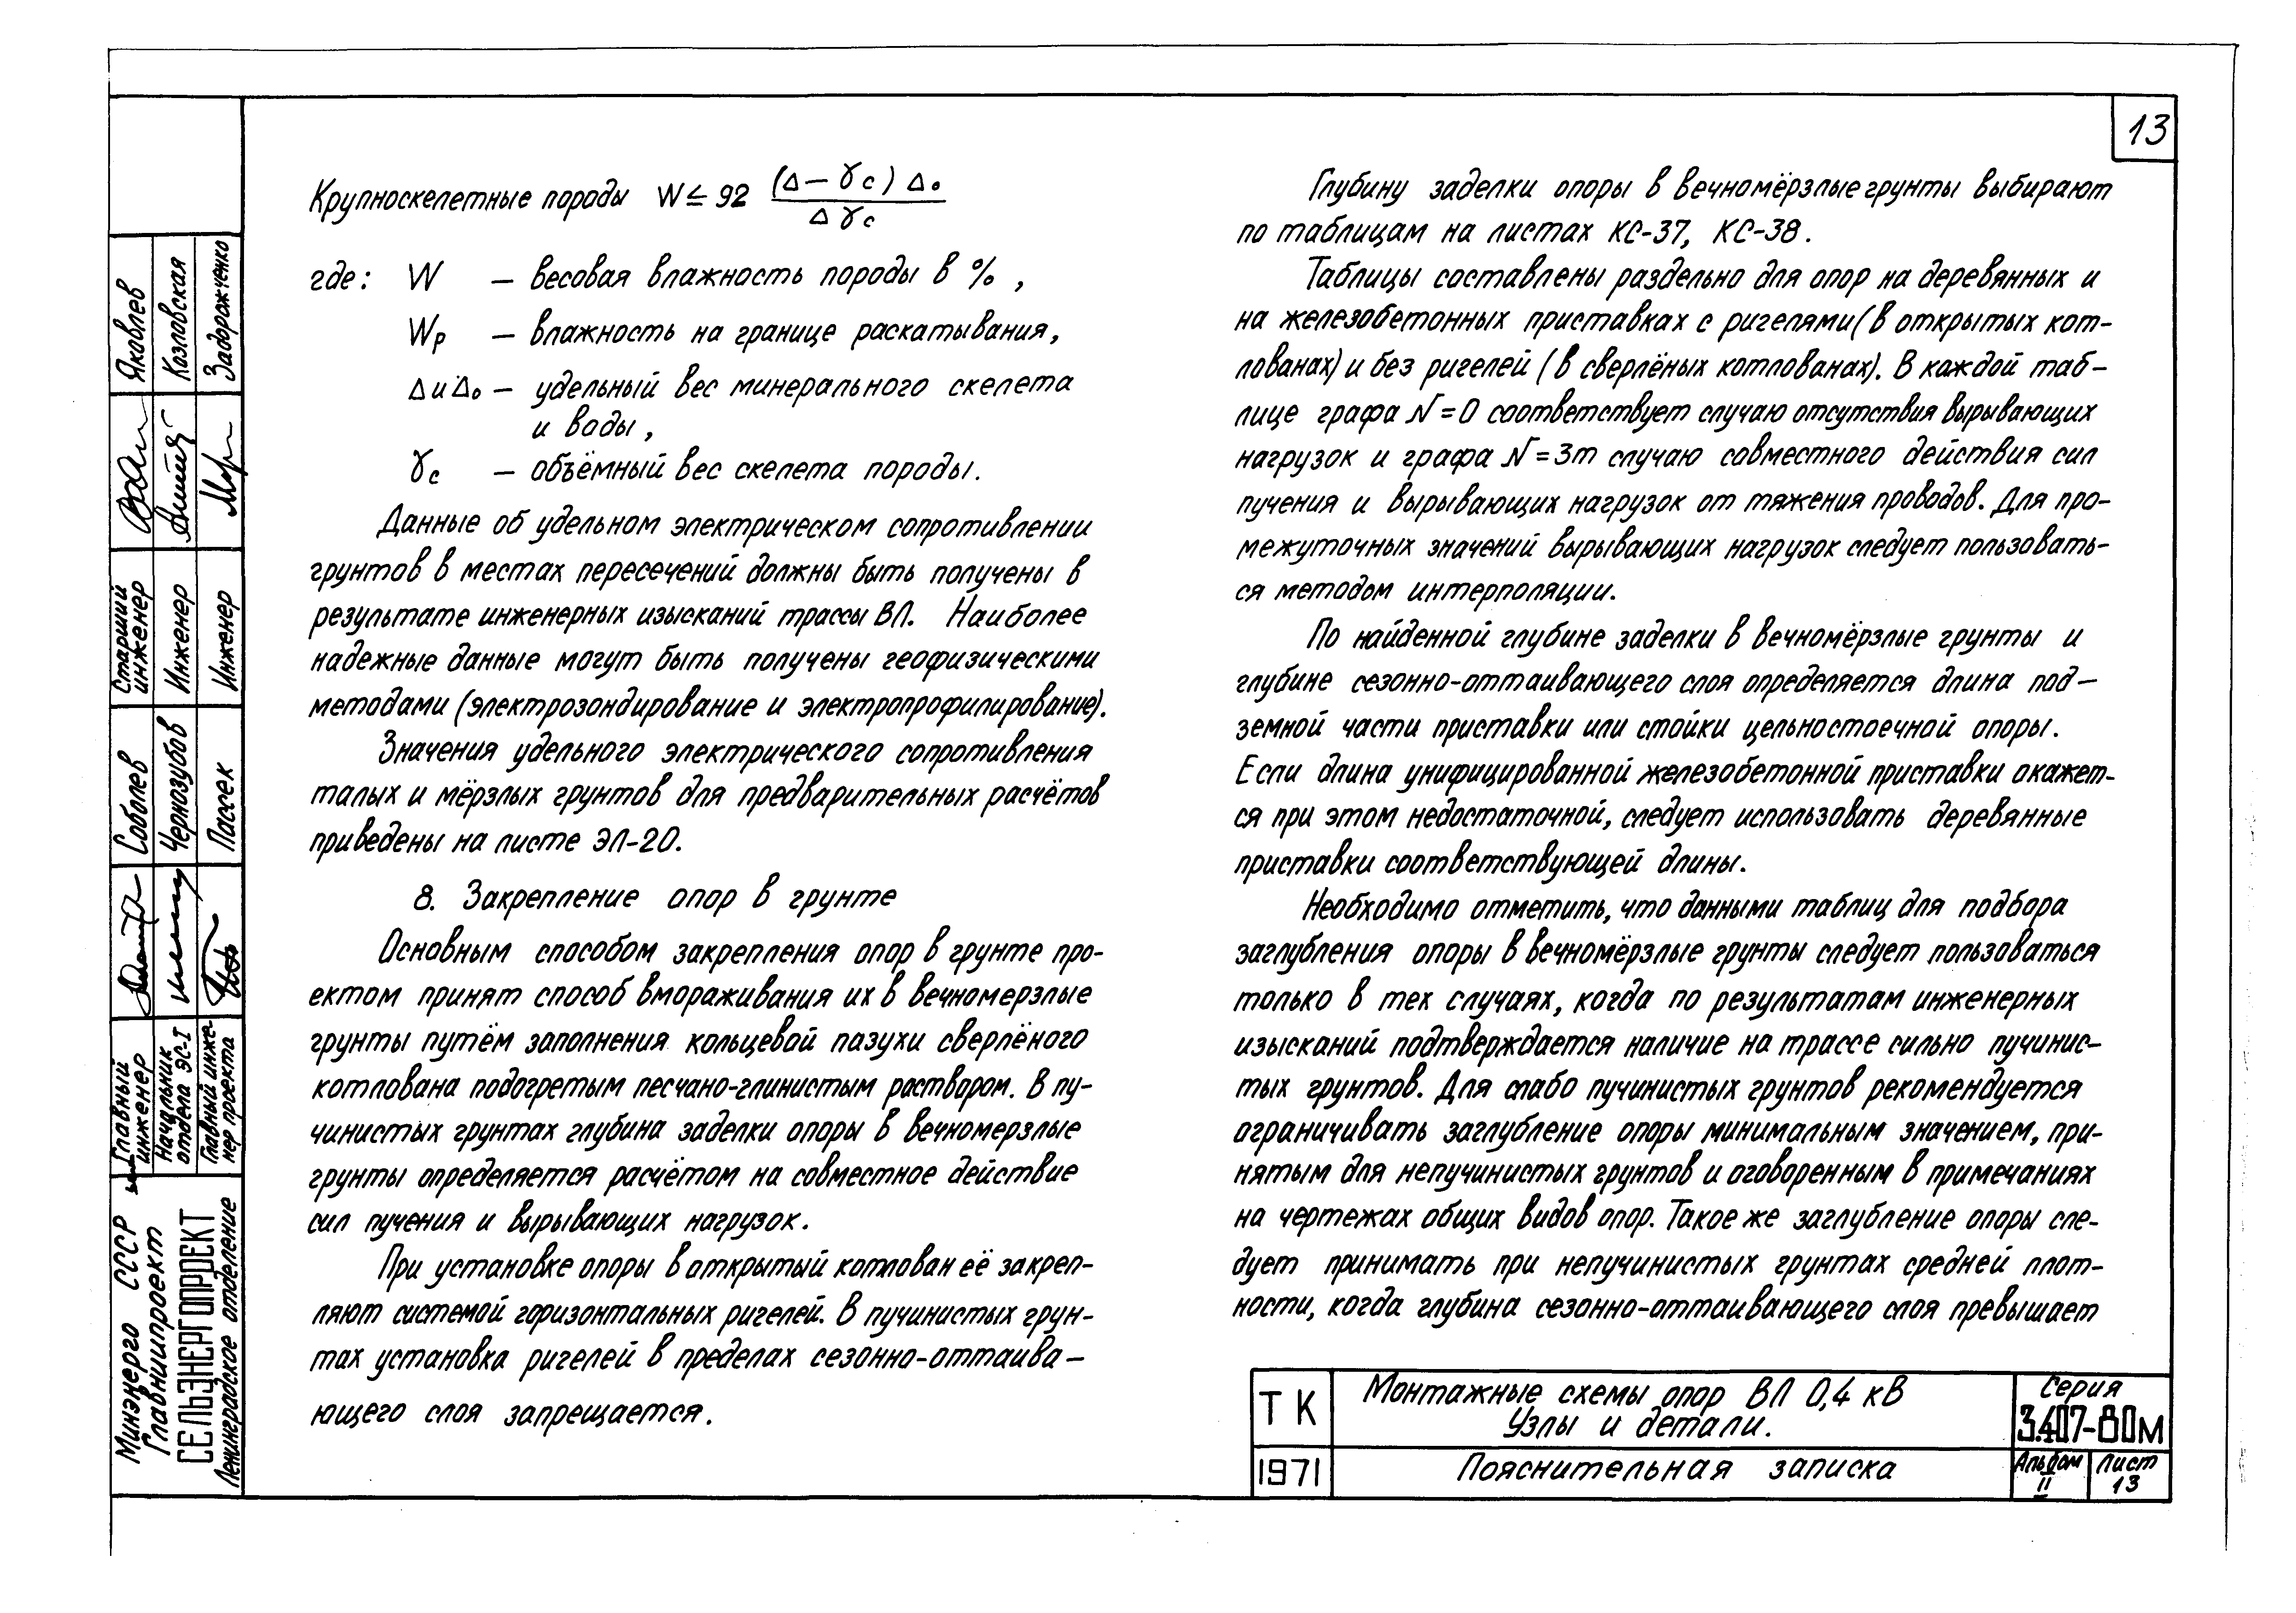 13
Крупноскелетные породы W ≤ 92 (Δ – γс) Δо / Δ γс
где: W – весовая влажность породы в %,
Wр – влажность на границе раскатывания,
Δ и Δо – удельный вес минерального скелета
и воды,
γс – объёмный вес скелета породы.
Данные об удельном электрическом сопротивлении
грунтов в местах пересечений должны быть получены в
результате инженерных изысканий трассы ВЛ. Наиболее
надежные данные могут быть получены геофизическими
методами (электрозондирование и электропрофилирование).
Значения удельного электрического сопротивления
талых и мёрзлых грунтов для предварительных расчётов
приведены на листе ЭЛ-20.
8. Закрепление опор в грунте
Основным способом закрепления опор в грунте про-
ектом принят способ вмораживания их в вечномерзлые
грунты путём заполнения кольцевой пазухи сверлёного
котлована подогретым песчано-глинистым раствором. В пу-
чинистых грунтах глубина заделки опоры в вечномерзлые
грунты определяется расчётом на совместное действие
сил пучения и вырывающих нагрузок.
При установке опоры в открытый котлован её закреп-
ляют системой горизонтальных ригелей. В пучинистых грун-
тах установка ригелей в пределах сезонно-оттаива-
ющего слоя запрещается.
Глубину заделки опоры в вечномёрзлые грунты выбирают
по таблицам на листах КС-37, КС-38.
Таблицы составлены раздельно для опор на деревянных и
на железобетонных приставках с ригелями (в открытых кот-
лованах) и без ригелей (в сверлёных котлованах). В каждой таб-
лице графа N = 0 соответствует случаю отсутствия вырывающих
нагрузок и графа N = 3т случаю совместного действия сил
пучения и вырывающих нагрузок от тяжения проводов. Для про-
межуточных значений вырывающих нагрузок следует пользовать-
ся методом интерполяции.
По найденной глубине заделки в вечномёрзлые грунты и
глубине сезонно-оттаивающего слоя определяется длина под-
земной части приставки или стойки цельностоечной опоры.
Если длина унифицированной железобетонной приставки окажет-
ся при этом недостаточной, следует использовать деревянные
приставки соответствующей длины.
Необходимо отметить, что данными таблиц для подбора
заглубления опоры в вечномёрзлые грунты следует пользоваться
только в тех случаях, когда по результатам инженерных
изысканий подтверждается наличие на трассе сильно пучинис-
тых грунтов. Для слабо пучинистых грунтов рекомендуется
ограничивать заглубление опоры минимальным значением, при-
нятым для непучинистых грунтов и оговоренным в примечаниях
на чертежах общих видов опор. Такое же заглубление опоры сле-
дует принимать при непучинистых грунтах средней плот-
ности, когда глубина сезонно-оттаивающего слоя превышает
ТК
1971
Монтажные схемы опор ВЛ 0,4 кВ
Узлы и детали.
Пояснительная записка
Серия
3.407-80м
Альбом
II
Лист
13
Минэнерго СССР
Главниипроект
СЕЛЬЭНЕРГОПРОЕКТ
Ленинградское отделение
Главный
инженер
Соболев
Начальник
отдела ЭС-I
Чернозубов
Главный инже-
нер проекта
Пассек
Старший
инженер
Яковлев
Инженер
Козловская
Инженер
Задорожченко